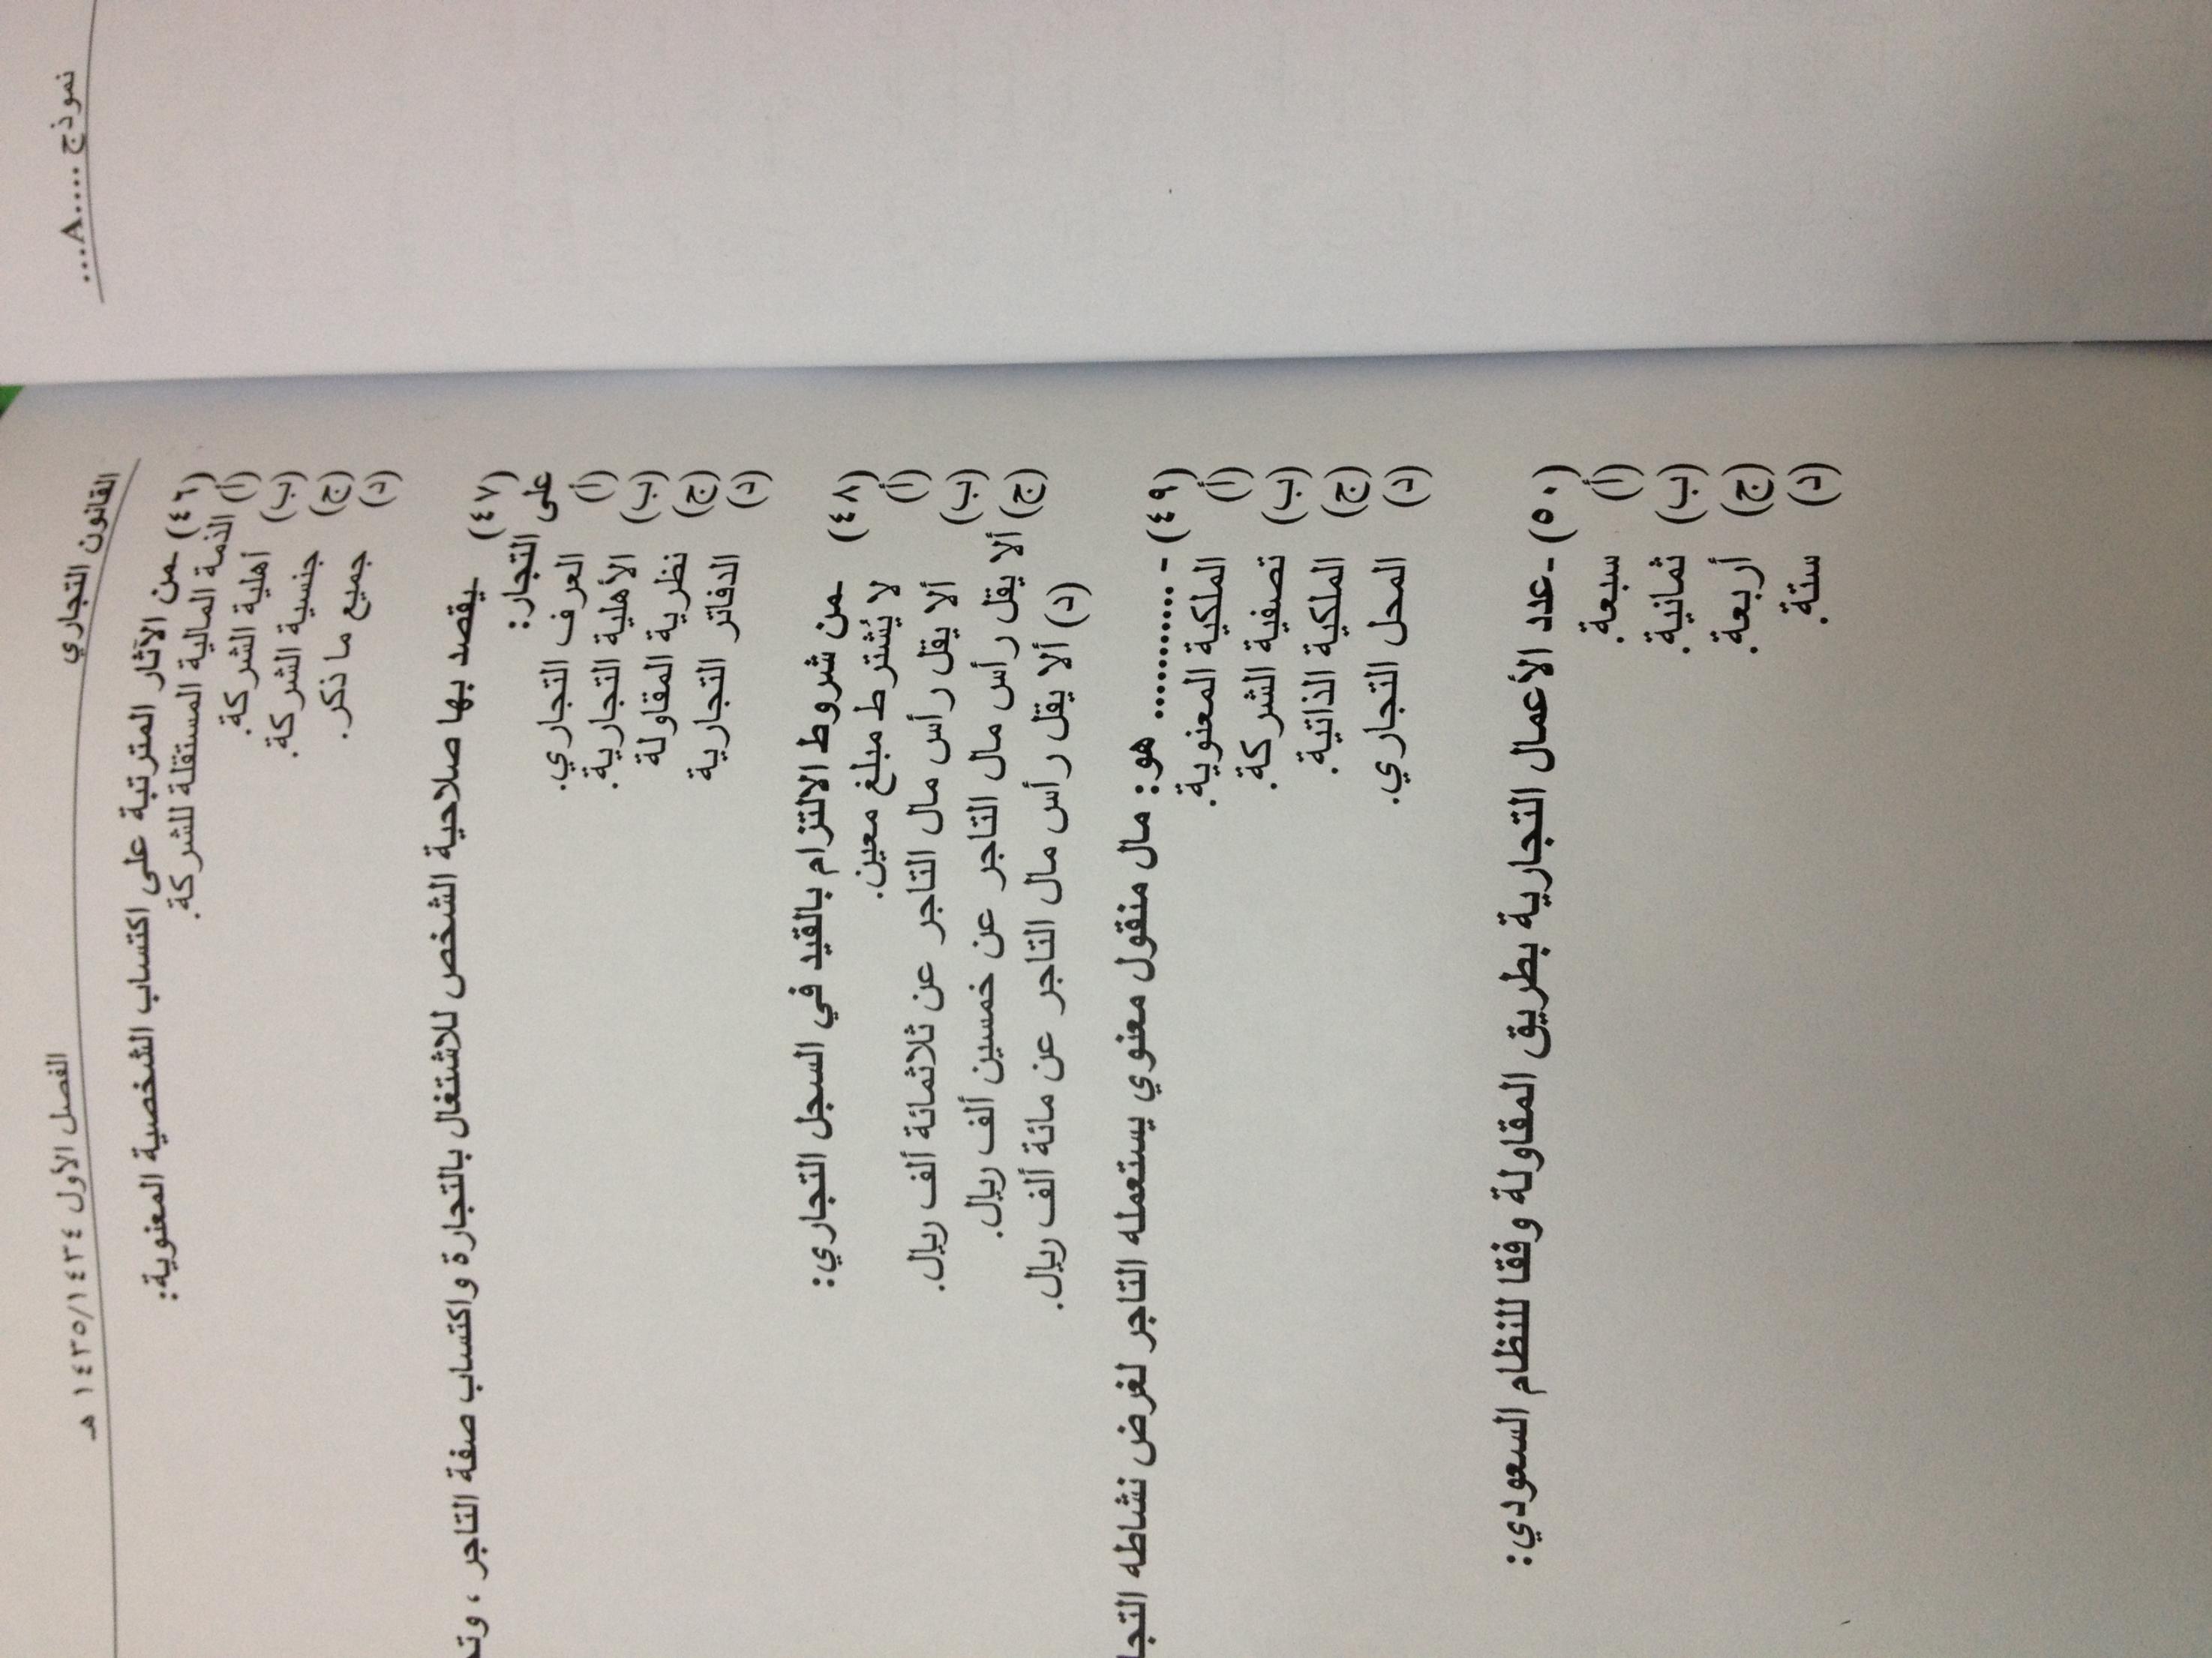 نموذج ....A....
القانون التجاري
الفصل الأول ١٤٣٥/١٤٣٤ هـ
(٤٦) -من الآثار المترتبة على اكتساب الشخصية المعنوية:
(أ) الذمة المالية المستقلة للشركة.
(ب) أهلية الشركة.
(ج) جنسية الشركة.
(د) جميع ما ذكر.
(٤٧) -يقصد بها صلاحية الشخص للاشتغال بالتجارة واكتساب صفة التاجر ، وتح
على التجار:
(أ) العرف التجاري.
(ب) الأهلية التجارية.
(ج) نظرية المقاولة
(د) الدفاتر التجارية
(٤٨) -من شروط الالتزام بالقيد في السجل التجاري:
(أ) لا يُشترط مبلغ معين.
(ب) ألا يقل رأس مال التاجر عن ثلاثمائة ألف ريال.
(ج) ألا يقل رأس مال التاجر عن خمسين ألف ريال.
(د) ألا يقل رأس مال التاجر عن مائة ألف ريال.
(٤٩) - ........... هو: مال منقول معنوي يستعمله التاجر لغرض نشاطه التجا
(أ) الملكية المعنوية.
(ب) تصفية الشركة.
(ج) الملكية الذاتية.
(د) المحل التجاري.
(٥٠) -عدد الأعمال التجارية بطريق المقاولة وفقا للنظام السعودي:
(أ) سبعة.
(ب) ثمانية.
(ج) أربعة.
(د) ستة.